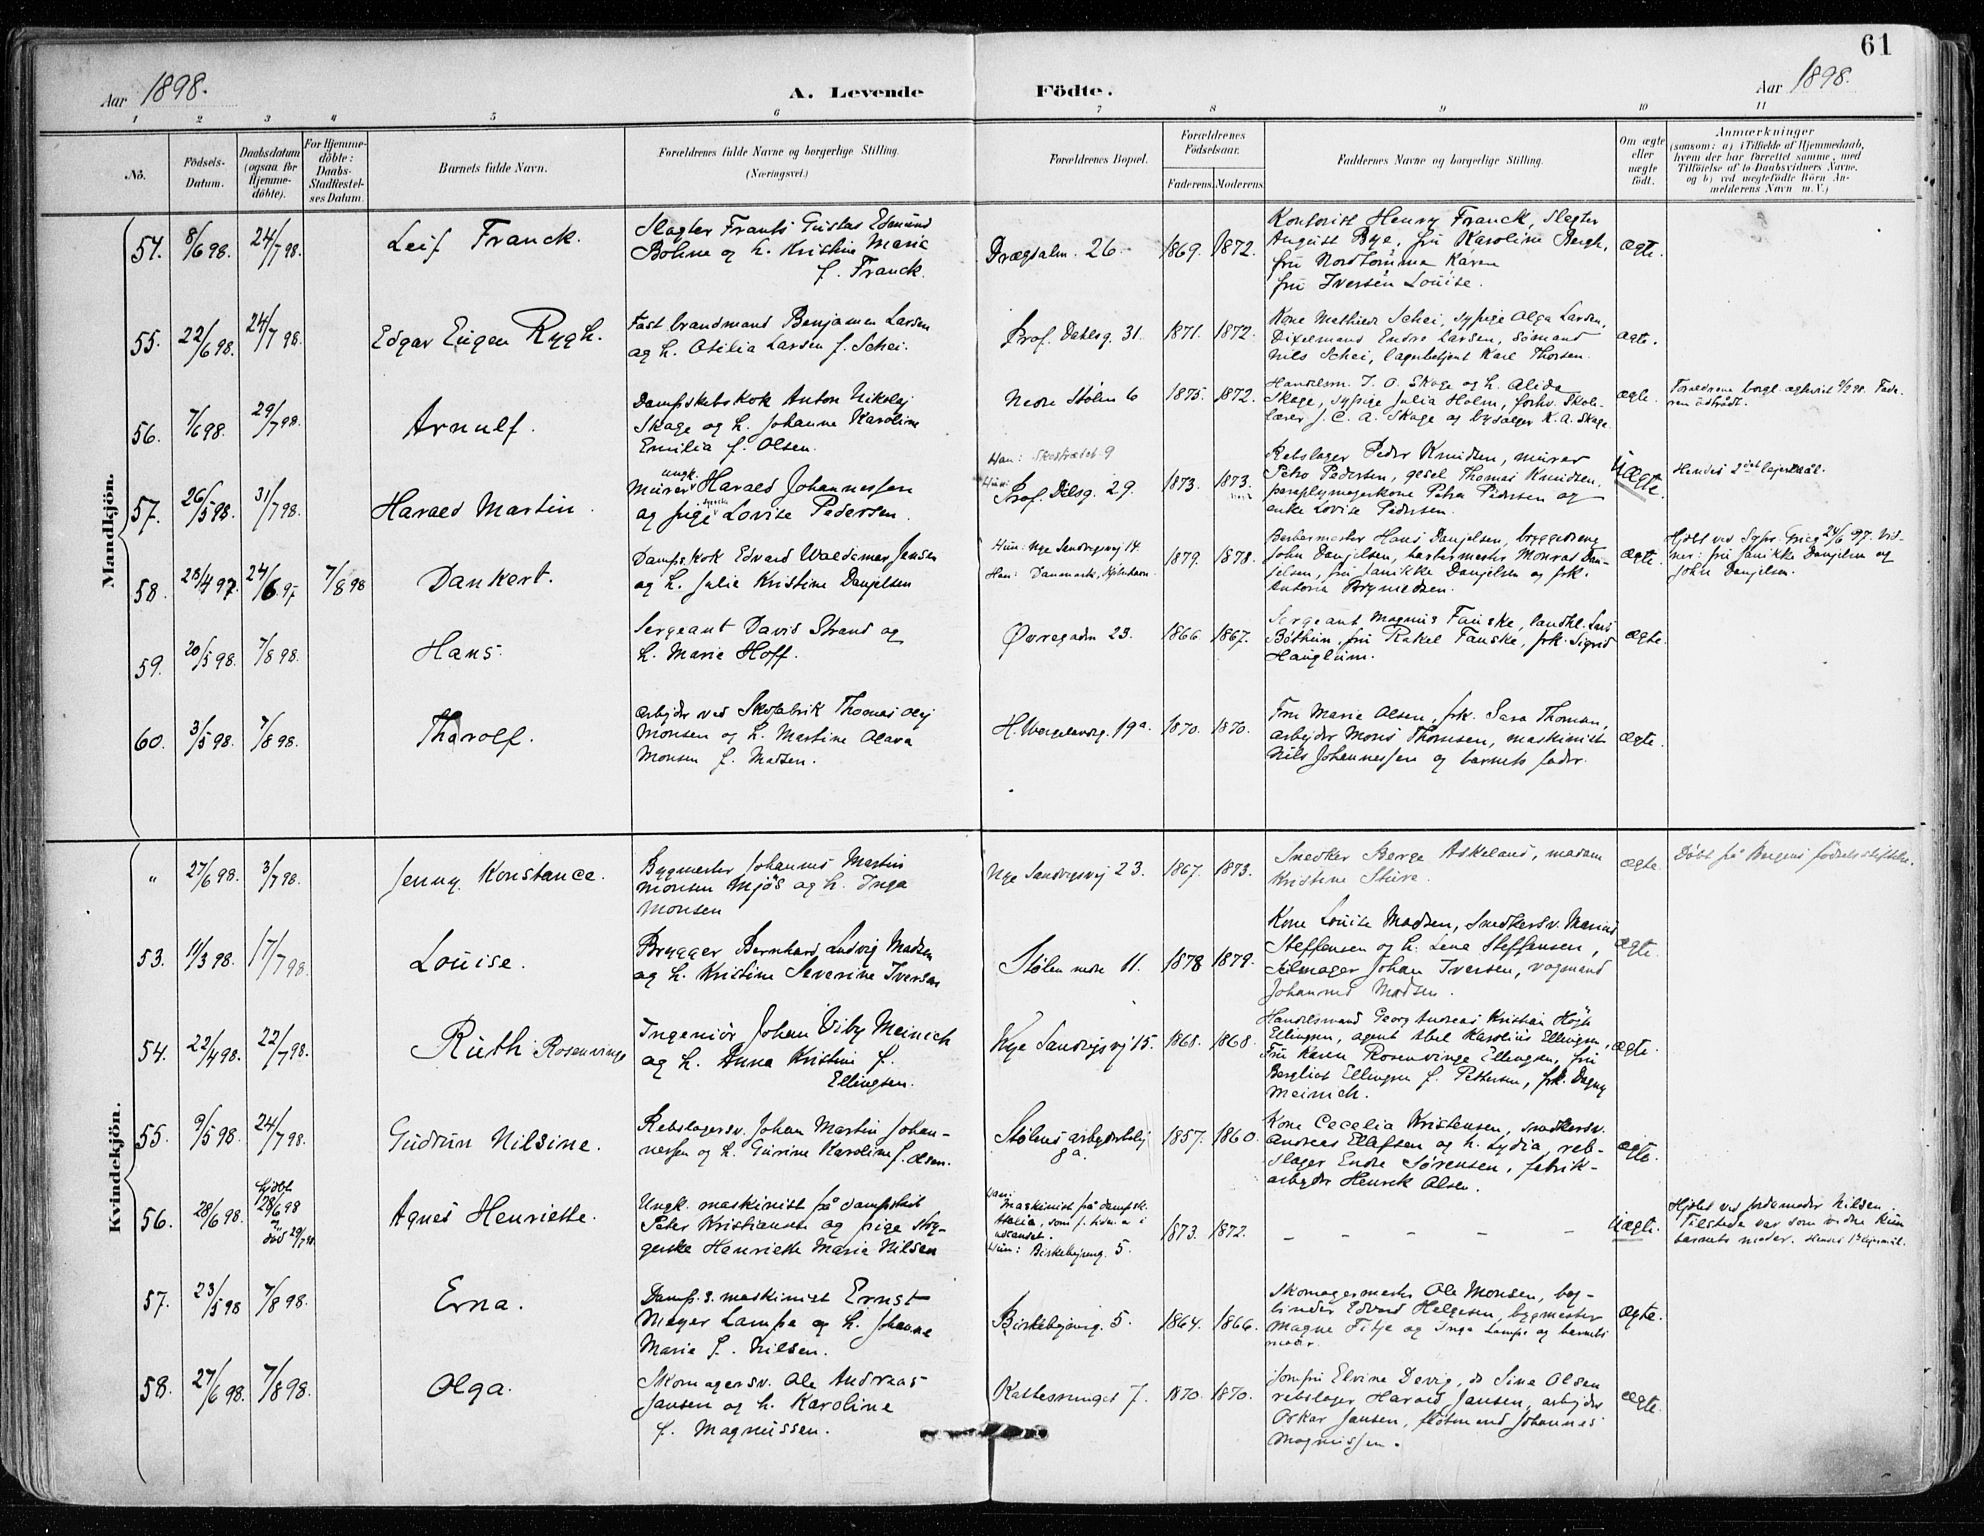 61
Aar 1898.
A. Levende Födte.
Aar 1898.
1 2 3 4 5 6 7 8 9 10 11
No.
Födsels-Datum.
Daabsdatum (ogsaa for Hjemmedöbte).
For Hjemmedöbte: Daabs-Stadfæstelses Datum.
Barnets fulde Navn.
Forældrenes fulde Navne og borgerlige Stilling. (Næringsvei.)
Forældrenes Bopæl.
Forældrenes Födselsaar.
Faderens. Moderens.
Faddernes Navne og borgerlige Stilling.
Om ægte eller uægte födt.
Anmærkninger
(saasom: a) i Tilfælde af Hjemmedaab, hvem der har forrettet samme, med Tilföielse af to Daabsvidners Navne, og b) ved uægtefödte Börn Anmelderens Navn m. V.)
Mandkjön.
54. 8/6 98. 24/7 98. Leif Franck.
Slagter Frants Gustav Edmund
Böhne og h. Kristine Marie
f. Franck.
Drægsalm. 26. 1869. 1872.
Kontorist Henry Franck, slagter
August Bye, fru Karoline Bergh,
fru Nordtømme Karen
fru Iversen Louise.
ægte.
55. 22/6 98. 24/7 98. Edgar Eugen Rygh.
Fast brandmand Benjamen Larsen
og h. Otilia Larsen f. Schei.
Prof. Dahlsg. 31. 1871. 1872.
Kone Mathilde Schei, sypige Olga Larsen,
Dixelmand Endre Larsen, sømand
Nils Schei, lagerbetjent Karl Thorsen.
ægte.
56. 7/6 98. 29/7 98. Arnulf.
Dampskibskok Anton Nikolaj
Skage og h. Johanne Karoline
Emilia f. Olsen.
Nedre Stølen 6 1875. 1872.
Handelsm. J. O. Skage og h. Alida
Skage, sypige Julia Holm, forhv. skole-
lærer J. C. A. Skage og bysælger K. A. Skage.
ægte.
57. 26/5 98. 31/7 98. Harald Martin.
ungk.
Murer Harald Johannessen
og pige Lovise Pedersen.
Han: Skostrædet 9
Hun: Prof. Dalsg. 29. 1873. 1873.
Rebslager Peder Knudsen, murer
Petro Pedersen, gesel Thomas Knudsen,
paraplymagerkone Petra Pedersen og
enke Lovise Pedersen.
Uægte.
Hendes 2det lejermaal.
58. 23/4 97. 24/6 97. 7/8 98 Dankert.
Damps.kok Edvard Waldemar Jensen
og h. Julie Kristine Danjelsen
Hun: Nye Sandvigsvej 14.
Han: Danmark, Kjøbenhavn. 1879. 1878.
Barbermester Hans Danjelsen, byggedreng
John Danjelsen, barbermester Monrad Dan-
jelsen, fru Janikke Danjelsen og frk.
Antonia Brynildsen.
ægte.
Hjdbt ved Sypr. Grieg 24/6 97. Vid-
ner: fru Janikke Danjelsen og
John Danjelsen.
59. 20/5 98. 7/8 98. Hans.
Sergeant David Strand og
h. Marie Hoff.
Øvregaden 23. 1866 1867.
Sergeant Magnus Fauske, landhl. Lars
Bøthun, fru Rakel Fauske, frk. Sigrid
Hauglum.
ægte.
60. 3/5 98. 7/8 98. Tharolf.
Arbejder ved Skofabrik Thomas Olaj
Monsen og h. Martine Olava
Monsen f. Madsen.
H. Wergelandsg. 19a. 1870. 1870.
Fru Marie Olsen, frk. Sara Thomsen,
arbejder Mons Thomsen, maskinist
Nils Johannessen og barnets fader.
ægte.
Kvindekjön.
" 27/6 98. 3/7 98. Jenny Konstance.
Bygmester Johannes Martin
Monsen Mjøs og h. Inga
Monsen
Nye Sandvigsvej 23. 1867. 1873.
Snedker Berge Askeland, madam
Kristine Stüve.
ægte.
Døbt på Bergens fødselsstiftelse.
53. 11/3 98. 17/7 98. Louise.
Brygger Bernhard Ludvig Madsen
og h. Kristine Severine Iversen
Stølen nedre 11. 1878 1879.
Kone Louise Madsen, Snedkersv. Marius
Steffensen og h. Lena Steffensen,
Seilmager Johan Iversen, vogmand
Johannes Madsen.
ægte.
54. 22/4 98. 22/7 98. Ruth Rosenvinge
Ingeniør Johan Viby Meinich
og h. Anna Kristine f.
Ellingsen.
Nye Sandvigsvj 15. 1868. 1868.
Handelsmand Georg Andreas Kristian Højer
Ellingsen, agent Abel Karolius Ellingsen,
Fru Karen Rosenvinge Ellingsen, fru
Bergliot Ellingsen f. Pettersen, frk. Dagny
Meinich.
ægte.
55. 9/5 98. 24/7 98. Gudrun Nilsine.
Rebslagersv. Johan Martin Johan-
nessen og h. Gurine Karoline f. Olsen.
Stølens arbejderbolig
8a. 1857. 1860.
Kone Cecelia Kristensen, snedkersv.
Andreas Ellefsen og h. Lydia, reb-
slager Endre Sørensen, fabrik-
arbejder Henrik Olsen.
ægte.
56. 28/6 98. hjdbt 28/6 98 død 29/7 98. Agnes Henriette.
Ungk. maskinist på dampskib
Peter Kristiansen og pige Nor-
gerske Henriette Marie Nilsen
Han:
Maskinist på dampsk.
Italia, som f. tiden er i
udlandet.
Hun: Birkebejnerg. 5. 1873. 1872.
– – – – – –
Uægte.
Hjdbt ved jordemoder Nilsen.
Tilstede var som vidne kun
barnets moder. Hendes 1ste lejermål.
57. 23/5 98 7/8 98. Erna.
Damp.s. maskinist Ernst
Meyer Lampe og h. Johanne
Marie f. Nilsen.
Birkebejnerg. 5. 1864. 1866.
Skomagermester Ole Monsen, bog-
binder Edvard Helgesen, bygmester
Magne Titje og Inga Lampe og barnets
moder.
ægte.
58. 27/6 98. 7/8 98. Olga.
Skomagersv. Ole Andreas
Jansen og h. Karoline
f. Magnussen.
Kattesmuget 7. 1870. 1870.
Jomfru Elvine Devig, do Sina Olsen
rebslager Harald Jansen, arbejder
Oskar Jansen, fløtmand Johannes
Magnussen.
ægte.